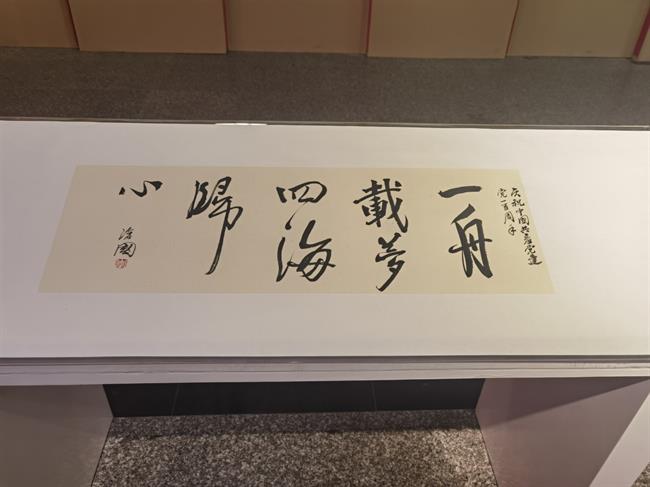 庆祝中国共产党建
党一百周年
一舟
載夢
四海
歸
心